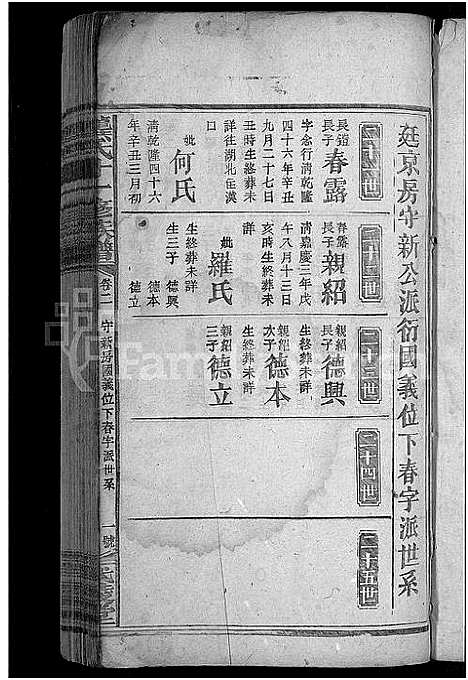 廷京房守新公派衍國義位下春字派世系
二十一世
長鐙長子
春露
字念行清乾隆
四十六年辛丑
九月二十七日
丑時生終葬未
詳往湖北在漢
口
妣何氏
清乾隆四十六
年辛丑三月初
二十二世
春露長子
親紹
清嘉慶三年戊
午八月十三日
亥時生終葬未
詳
妣羅氏
生終葬未詳
生三子 德興
德本
德立
二十三世
親紹長子
德興
生終葬未詳
親紹次子
德本
生終葬未詳
親紹三子
德立
二十四世
二十五世
氏十一修族譜
卷二
守新房國義位下春字派世系
一號